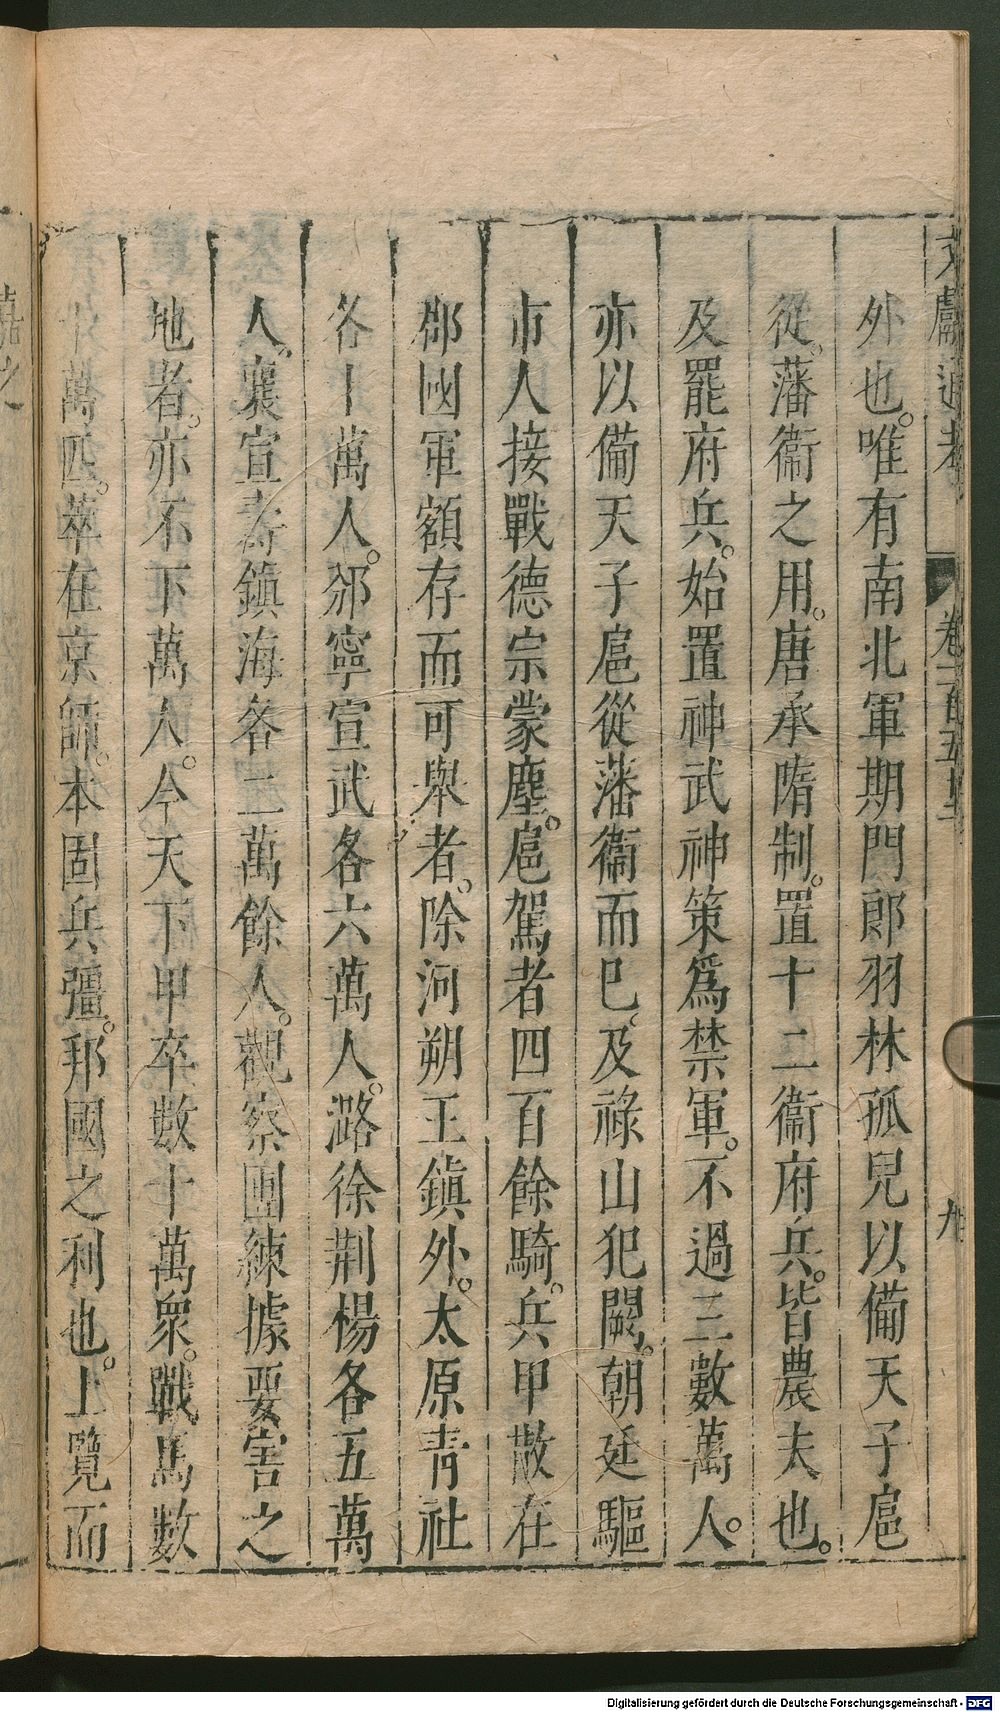 文獻通考 卷一百五十二 九
外也。唯有南北軍期門郎羽林孤兒以備天子扈
從。藩衞之用。唐承隋制。置十二衞府兵。皆農夫也。
及罷府兵。始置神武神策爲禁軍。不過三數萬人。
亦以備天子扈從藩衞而巳。及祿山犯闕。朝廷驅
市人接戰德宗蒙塵。扈駕者四百餘騎。兵甲散在
郡國軍額存而可舉者。除河朔王鎮外。太原青社
各十萬人。邠寧宣武各六萬人。潞徐荆楊各五萬
人。襄宣壽鎮海各二萬餘人。觀察團練據要害之
地者。亦不下萬人。今天下甲卒數十萬衆。戰馬數
十萬匹。萃在京師。本固兵彊。邦國之利也。上覽而
Digitalisierung gefördert durch die Deutsche Forschungsgemeinschaft - DFG